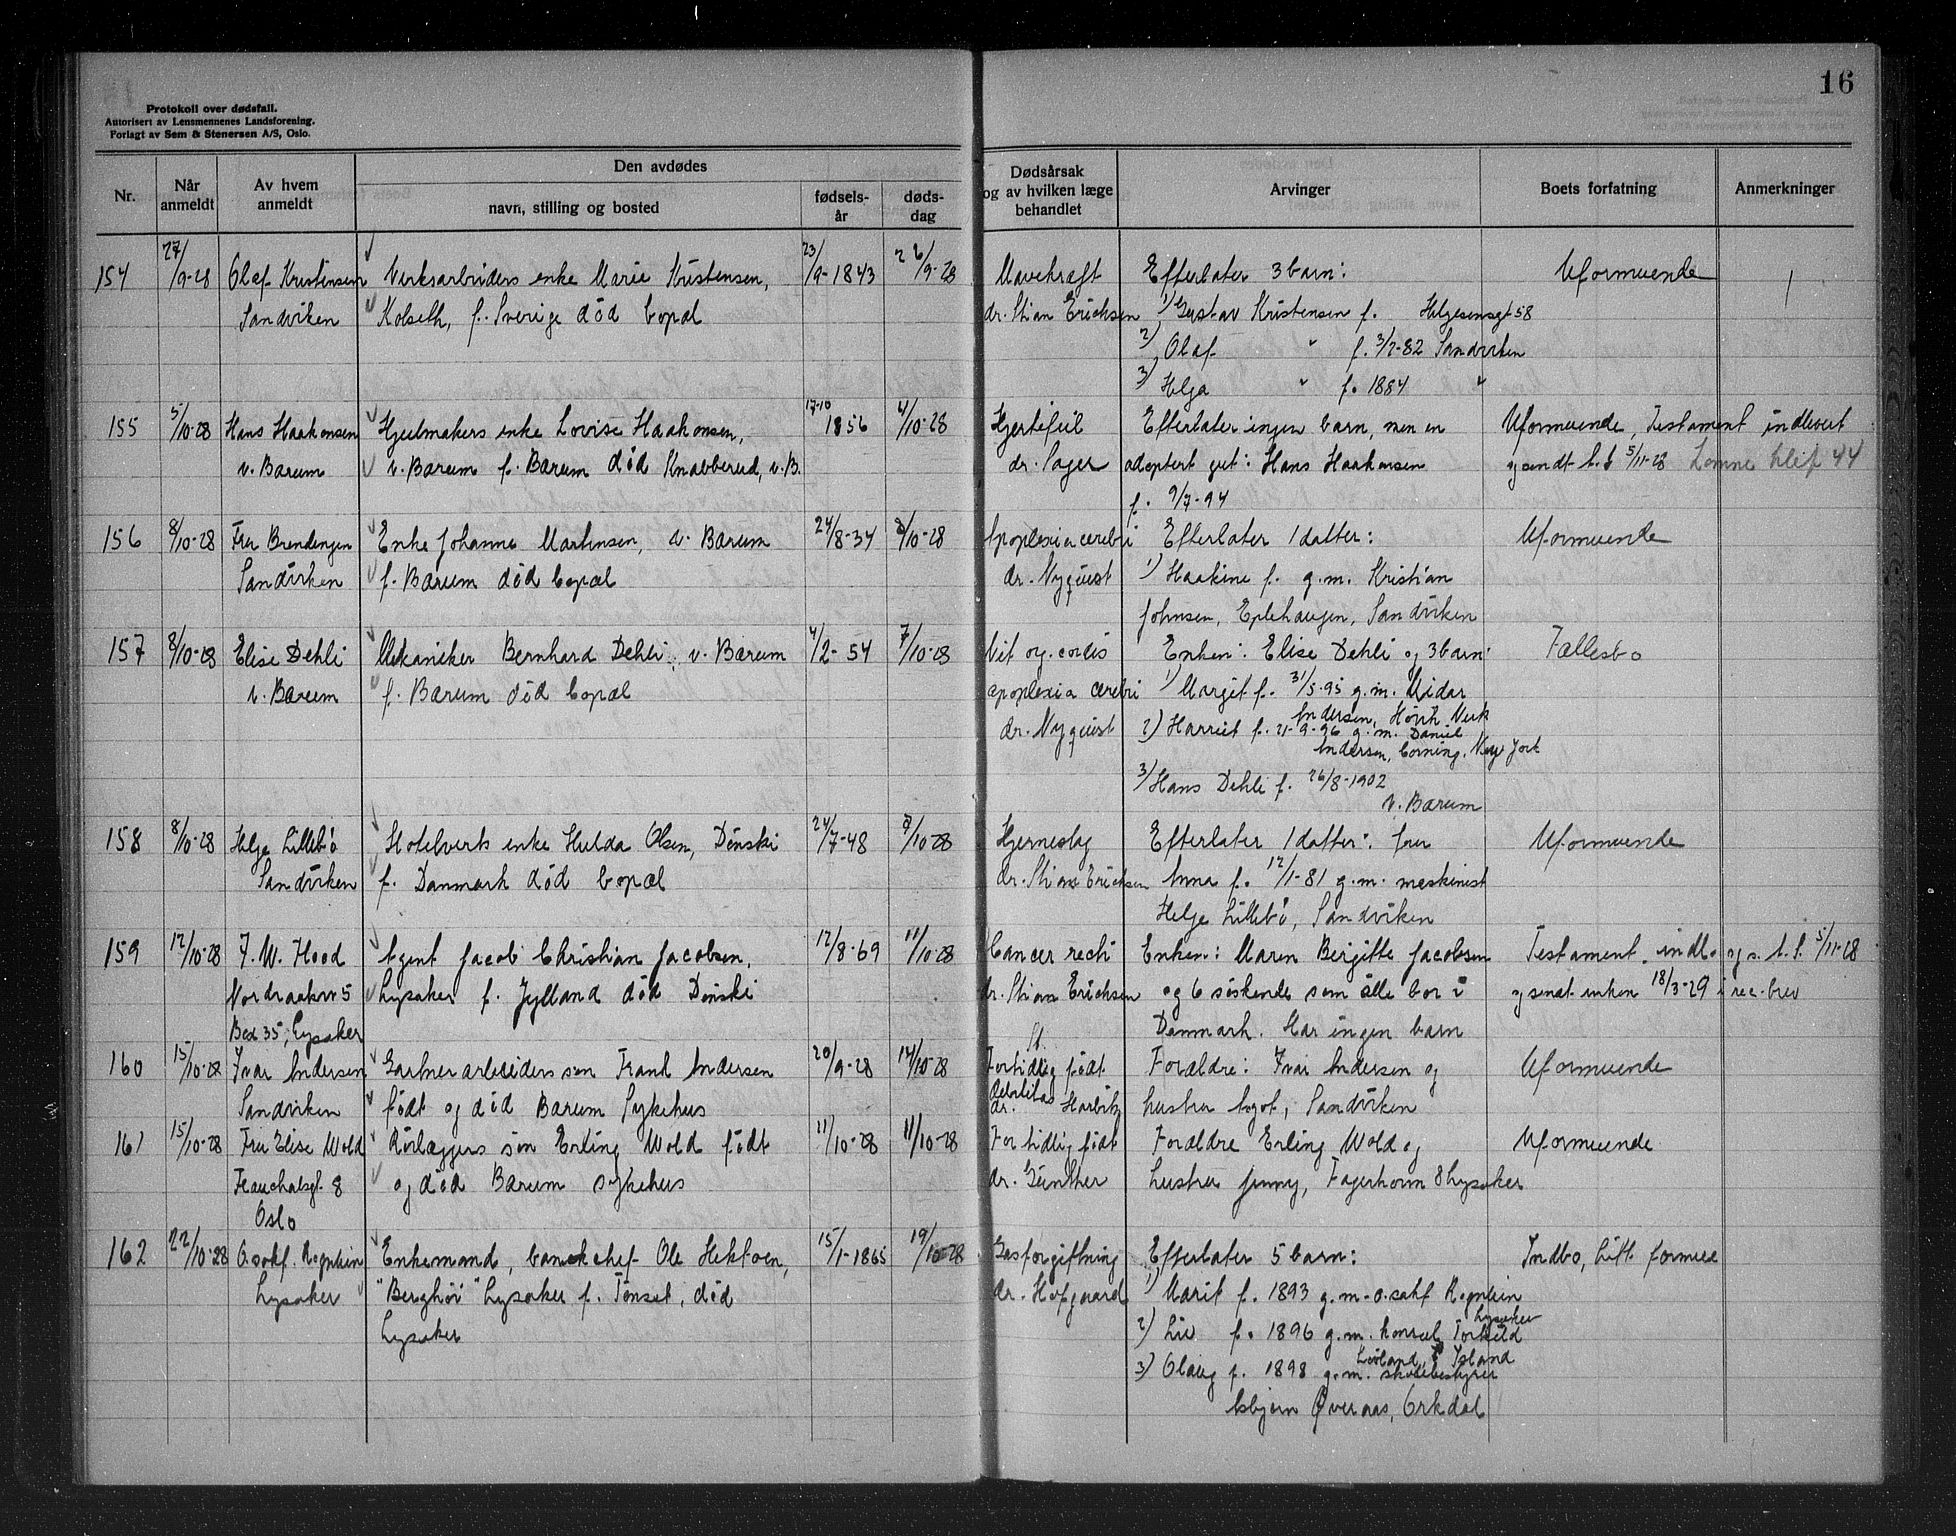 16
Protokoll over dødsfall.
Autorisert av Lensmennenes Landsforening.
Forlagt av Sem & Stenersen A/S, Oslo.
Nr.
Når anmeldt
Av hvem anmeldt
Den avdødes
navn, stilling og bosted
fødsels-år
døds-dag
Dødsårsak og av hvilken læge behandlet
Arvinger
Boets forfatning
Anmerkninger
154 27/9-28 Olaf Kristensen Verksarbeiders enke Marie Kristensen, 23/9-1843 26/9-28 Mavekræft Efterlater 3 barn: Uformuende
Sandviken Kolseth, f. Sverige død bopæl dr. Stian Erichsen 1) Gustav Kristensen f. Helgesensgt 58
2) Olaf " f. 3/7-82 Sandviken
3) Helga " f. 1884 "
155 5/10-28 Hans Haakonsen Hjulmakers enke Lovise Haakonsen, 17-10 1856 4/10-28 Hjertefeil Efterlater ingen barn, men en Uformuende, Testament indlevert
v. Bærum v. Bærum f. Bærum død Knabberud, v. B. dr. Sager adoptert gut: Hans Haakonsen og sendt t. S 5/11-28 44
f. 9/7-94
156 8/10-28 Fru Brendengen Enke Johanne Martinsen, v. Bærum 24/8-34 8/10-28 Apoplexia cerebri Efterlater 1 datter: Uformuende
Sandviken f. Bærum død bopæl dr. Nyquist 1) Haakine f. g.m. Kristian
Johnsen, Eplehaugen, Sandviken
157 8/10-28 Elise Dehli Mekaniker Bernhard Dehli, v. Bærum 4/2-54 7/10-28 Vit. org. cordis Enken: Elise Dehli og 3 barn: Fællesbo
v. Bærum f. Bærum død bopæl apoplexia cerebri 1) Margit f. 31/5-95 g.m. Vidar
Andersen, Høvik Verk
dr. Nyquist 2) Harriet f. 21-9-96 g.m. Daniel
Andersen, Corning, New York
3) Hans Dehli f. 26/8-1902
v. Bærum
158 8/10-28 Helge Lillebö Hotelverts enke Hulda Olsen, Dönski 24/7-48 7/10-28 Hjerneslag Efterlater 1 datter: fru Uformuende
Sandviken f. Danmark død bopæl dr. Stian Erichsen Anna f. 12/1-81 g.m. maskinist
Helge Lillebö, Sandviken
159 12/10-28 F. W. Hood Agent Jacob Christian Jacobsen, 12/8-69 11/10-28 Cancer recti Enken: Maren Birgitte Jacobsen Testament indl. og s. t. S. 5/11-28
Nordraaksv 5 Lysaker f. Jylland död Dönski dr. Stian Erichsen og 6 söskende som alle bor i og sendt enken 18/3-29 i rec. brev
Box 35, Lysaker Danmark. Har ingen barn
160 15/10-28 Ivar Andersen Gartnerarbeiders sön Frank Andersen 20/9-28 14/10-28 Fortidlig födt Forældre: Ivar Andersen og Uformuende
Sandviken födt og död Bærum Sykehus debilitas dr. Harbitz hustru Agot, Sandviken
161 15/10-28 Fru Elise Wold Rörlæggers sön Erling Wold födt 11/10-28 11/10-28 For tidlig födt Forældre Erling Wold og Uformuende
Frauchalsgt. 8 og död Bærum sykehus dr. Günther hustru Jenny, Fagerhorm 8 Lysaker
Oslo
162 22/10-28 O.sakf. Rognlien Enkemand, banckchef Ole Hektoen, 15/1-1865 19/10-28 Gasforgiftning Efterlater 5 barn: Indbo, litt formue
Lysaker "Berghöi" Lysaker f. Tönset, död dr. Hofgaard 1) Marit f. 1893 g.m. o.sakf Rognlien
Lysaker
Lysaker 2) Liv f. 1896 g.m. konsul Torkild
Island
3) Olaug f. 1898 g.m. skolebestyrer
Asbjörn Överaas, Orkdal